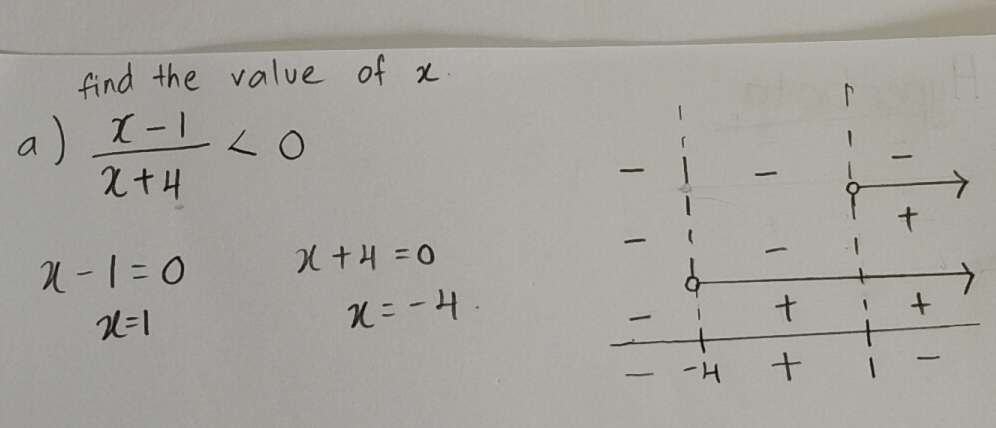 find the value of x.
a) x-1 / x+4 < 0
x-1=0 x+4=0
x=1 x=-4.
- - -
+
- -
- + +
- -4 + 1 -